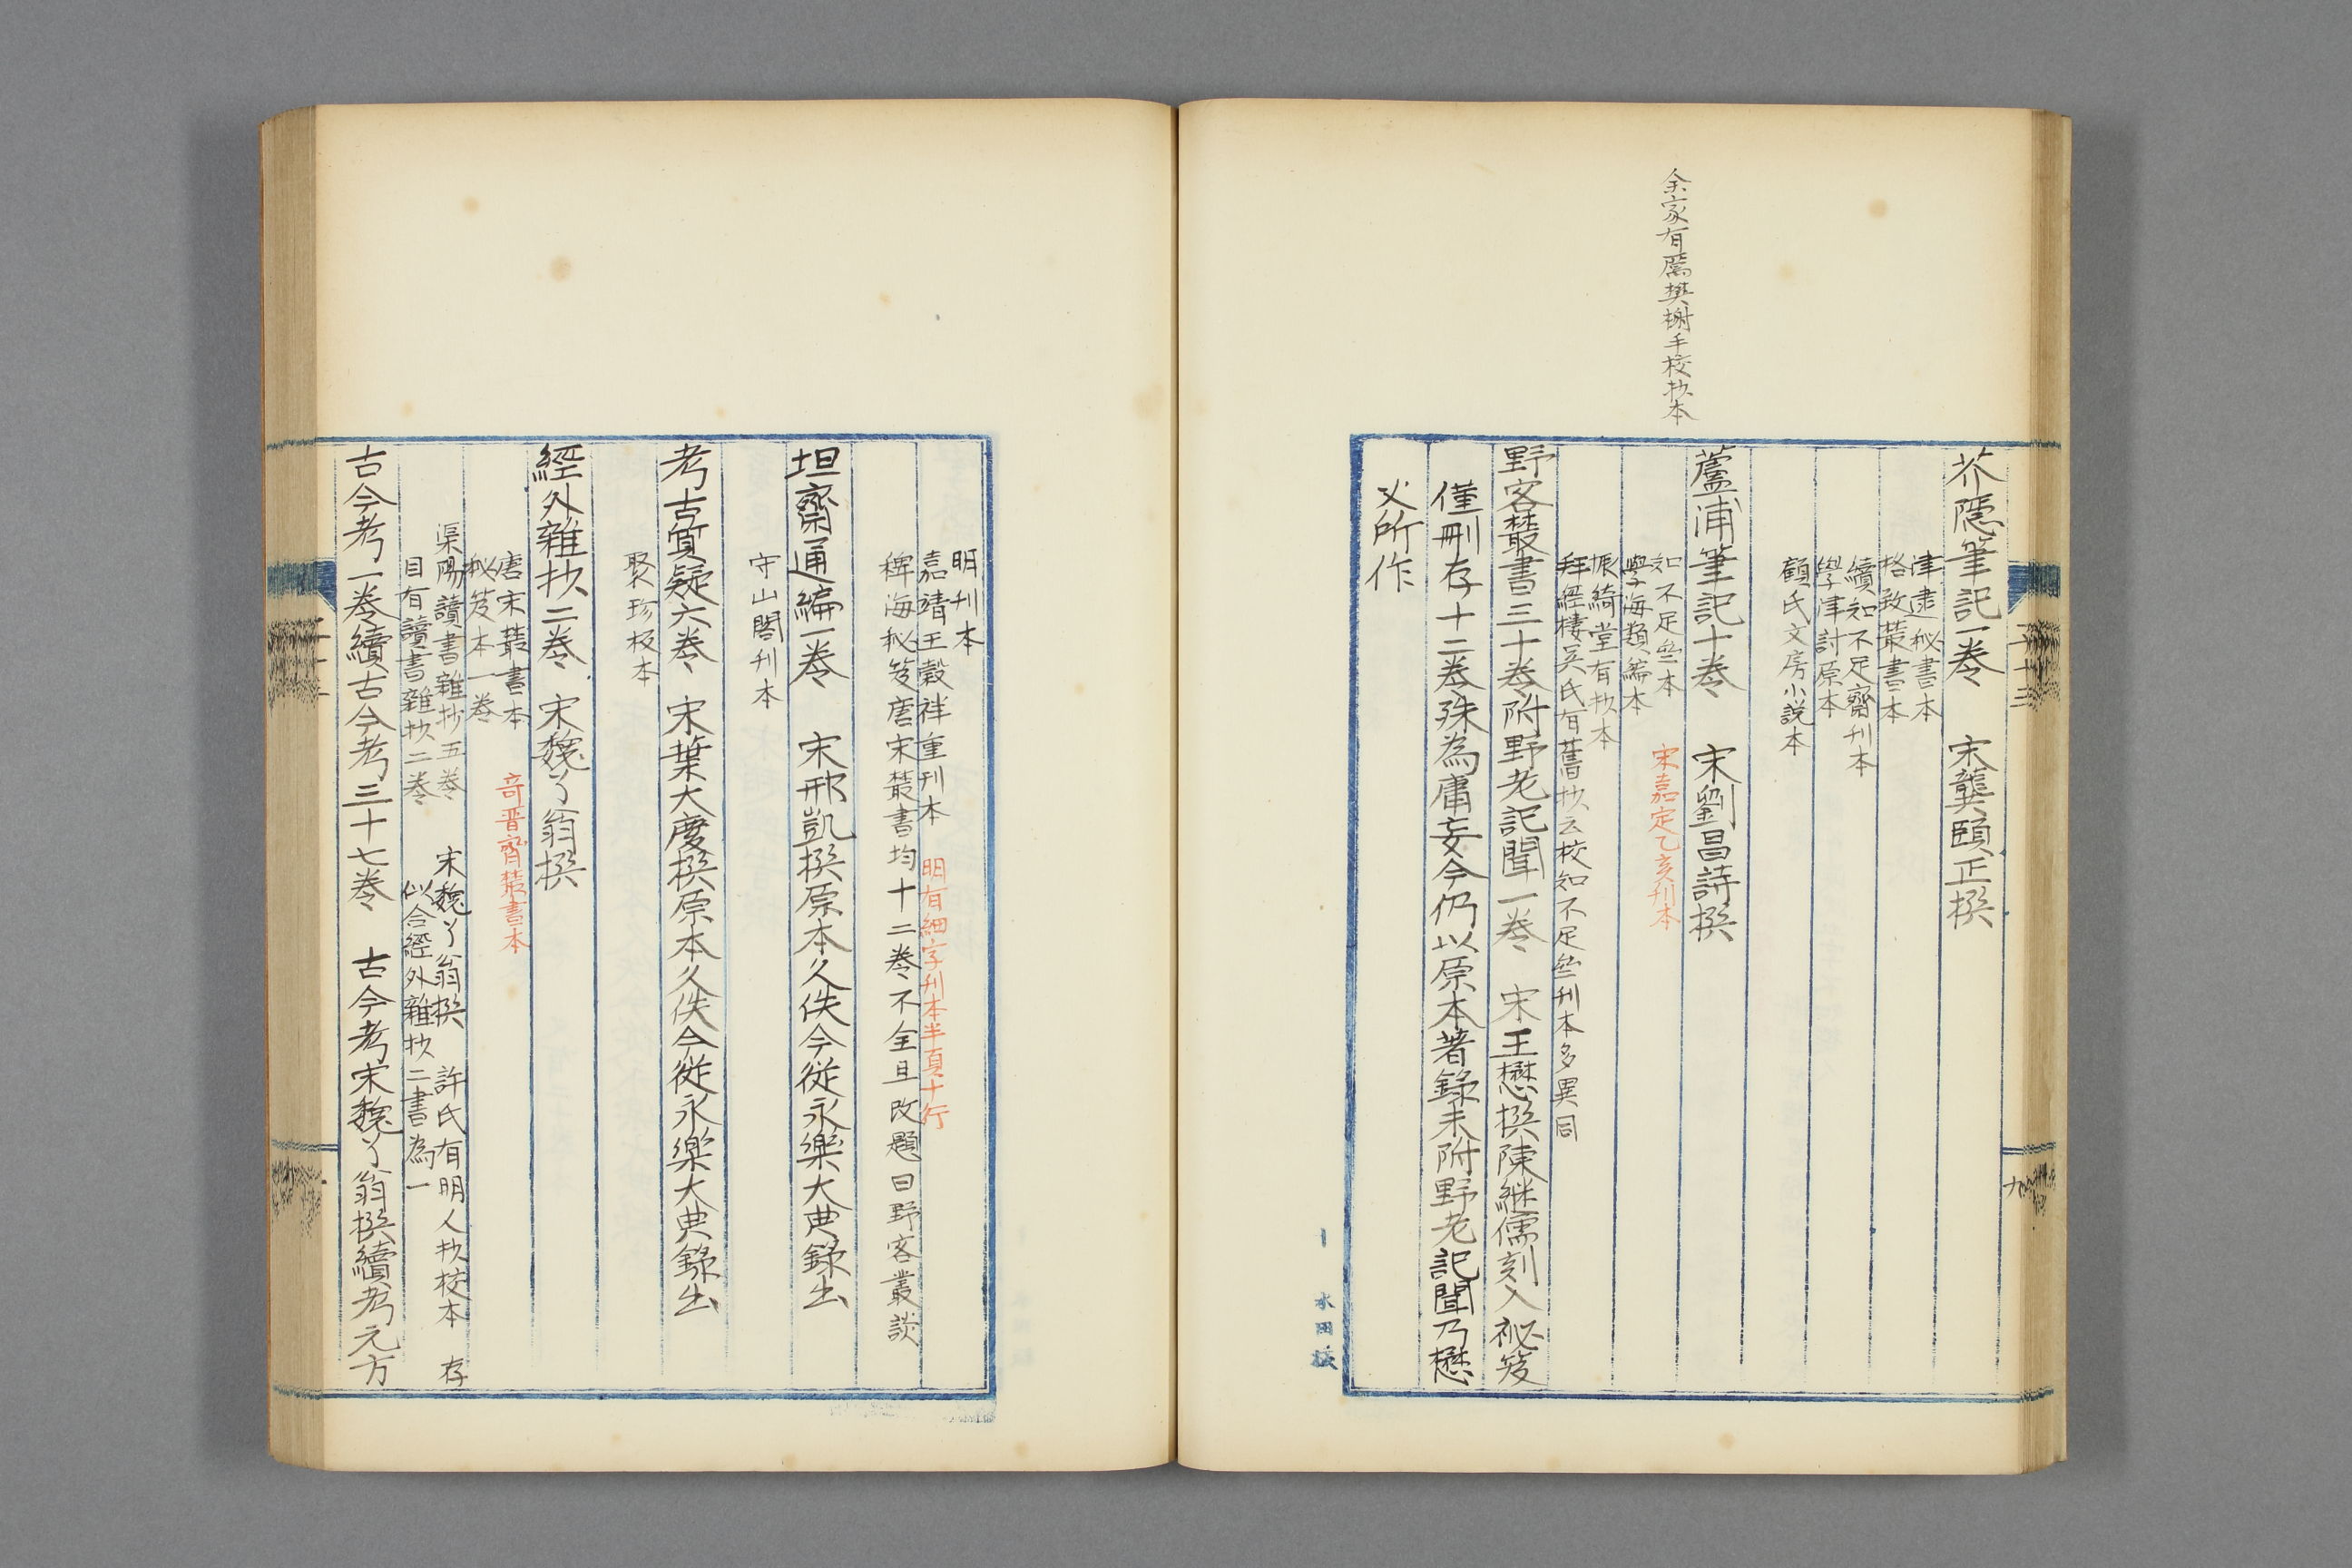 余家有厲樊榭手校抄本
芥隱筆記一卷　宋龔頤正撰
津逮秘書本
格致叢書本
續知不足齋刊本
學津討原本
顧氏文房小說本
蘆浦筆記十卷　宋劉昌詩撰
知不足齋本
宋嘉定乙亥刊本
學海類編本
振綺堂有抄本
拜經樓吳氏有舊抄云校知不足齋刊本多異同
野客叢書三十卷附野老記聞一卷　宋王楙撰陳繼儒刻入祕笈
僅刪存十二卷殊為庸妄今仍以原本著錄末附野老記聞乃楙
父所作
九
明刊本
嘉靖王穀祥重刊本　明有細字刊本半頁十行
稗海秘笈唐宋叢書均十二卷不全且改題曰野客叢談
坦齋通編一卷　宋邢凱撰原本久佚今從永樂大典錄出
守山閣刊本
考古質疑六卷　宋葉大慶撰原本久佚今從永樂大典錄出
聚珍板本
經外雜抄二卷　宋魏了翁撰
唐宋叢書本　奇晋齋叢書本
秘笈本一卷
渠陽讀書雜抄五卷　宋魏了翁撰　許氏有明人抄校本　存
目有讀書雜抄二卷　似合經外雜抄二書為一
古今考一卷續古今考三十七卷　古今考宋魏了翁撰續考元方